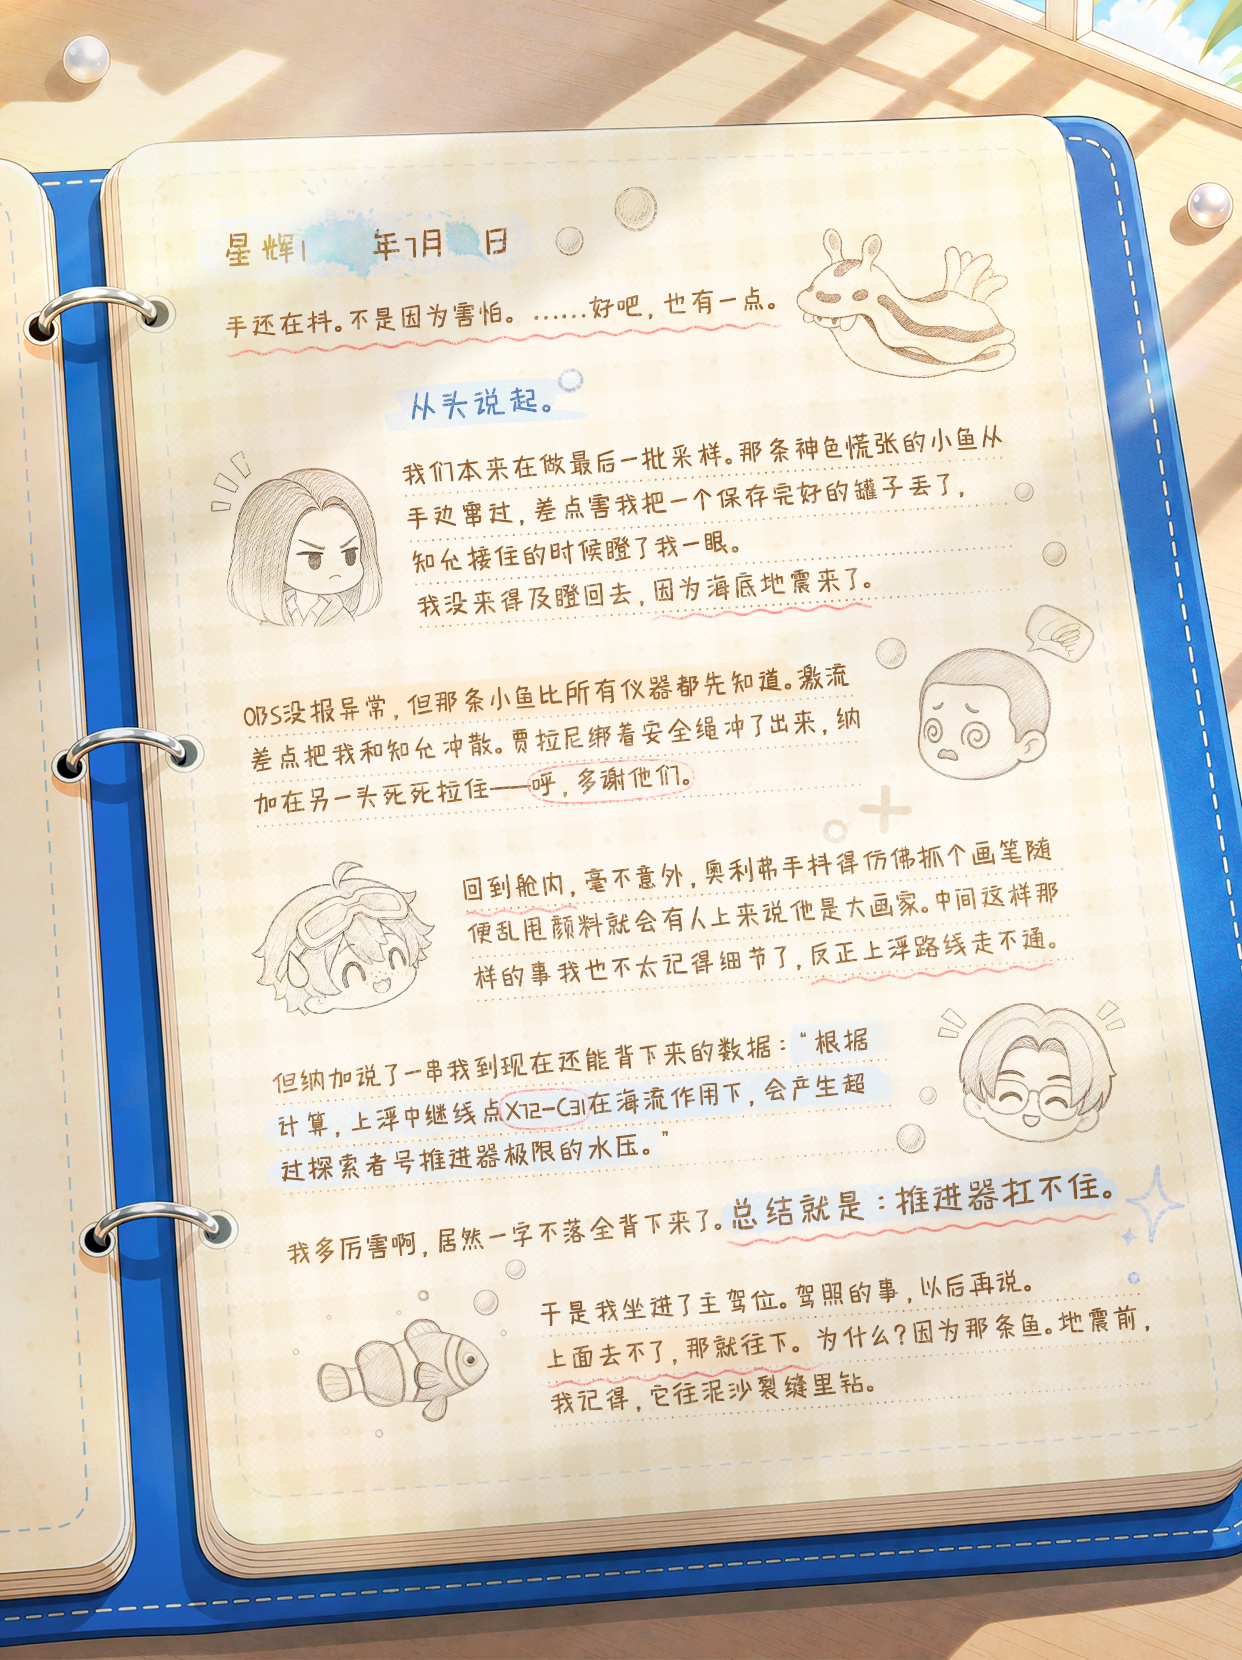 星辉1 年7月 日
手还在抖。不是因为害怕。……好吧，也有一点。
从头说起。
我们本来在做最后一批采样。那条神色慌张的小鱼从
手边窜过，差点害我把一个保存完好的罐子丢了，
知允接住的时候瞪了我一眼。
我没来得及瞪回去，因为海底地震来了。
OBS没报异常，但那条小鱼比所有仪器都先知道。激流
差点把我和知允冲散。贾拉尼绑着安全绳冲了出来，纳
加在另一头死死拉住——呼，多谢他们。
回到舱内，毫不意外，奥利弗手抖得仿佛抓个画笔随
便乱甩颜料就会有人上来说他是大画家。中间这样那
样的事我也不太记得细节了，反正上浮路线走不通。
但纳加说了一串我到现在还能背下来的数据：“根据
计算，上浮中继线点X72-C31在海流作用下，会产生超
过探索者号推进器极限的水压。”
我多厉害啊，居然一字不落全背下来了。总结就是：推进器扛不住。
于是我坐进了主驾位。驾照的事，以后再说。
上面去不了，那就往下。为什么？因为那条鱼。地震前，
我记得，它往泥沙裂缝里钻。